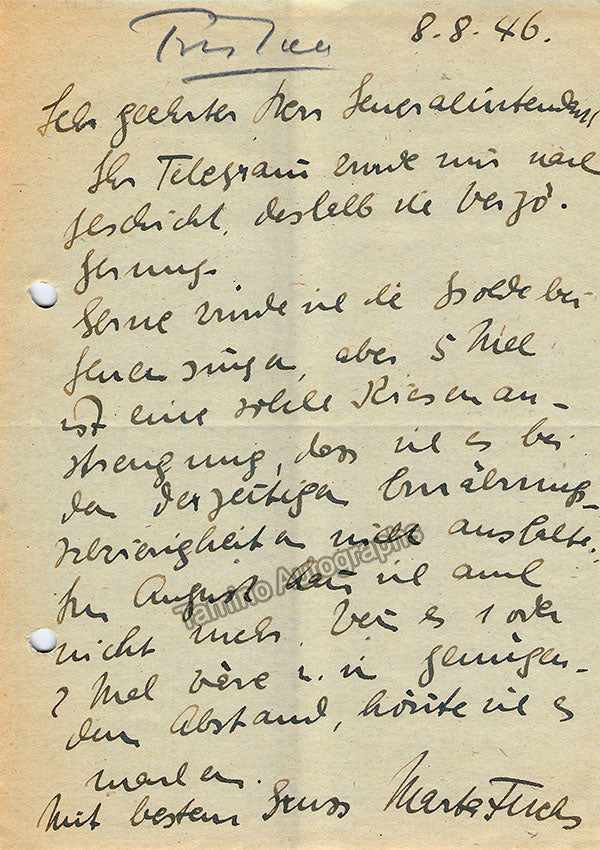 Tristan
8.8.46.
Sehr geehrter Herr Generalintendant
Ihr Telegramm wurde mir nach
geschickt, deshalb die Verzö-
gerung.
Gerne würde ich die Isolde bei
Ihnen singen, aber 5 Mal
ist eine solche Riesenan-
strengung, dass ich es bei
den derzeitigen Ernährungs-
schwierigkeiten nicht aushalte.
Im August kann ich auch
nicht mehr. Wenn es 1 oder
2 Mal wäre u. in genügen-
dem Abstand, könnte ich es
machen.
Mit bestem Gruss Marta Fuchs
Tamino Autographs